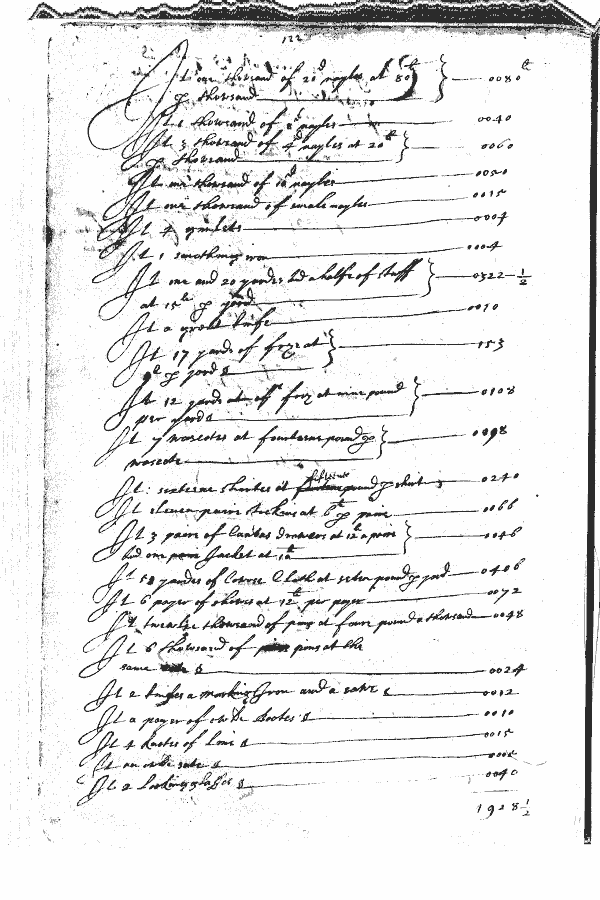 122
It one thousand of 20d nayles at 80lb — 0080lb
p thousand
It 1 thousand of 8d nayles — 0040
It 3 thousand of 4d nayles at 20lb — 0060
p thousand
It one thousand of 10d nayles — 0050
It one thousand of smale nayles — 0015
It 4 gimlets — 0004
It 1 smothing iron — 0004
It one and 20 yardes and a halfe of stuff — 0322 1/2
at 15lb p yard
It a great knife — 0010
It 17 yards of frize at — 153
9lb p yard
It 12 yards of friz at nine pound — 0108
per yard
It 7 wascotes at fourteene pound p — 0098
wascote
It: sixteene shirtes at fifteene pound p shirt — 0240
It eleven paire stockins at 6lb p paire — 0066
It 3 paire of Canvas drawers at 12lb a paire — 0046
and one Jacket at 10lb
It 58 yardes of Corse Cloth at seven pound p yard — 0406
It 6 payer of shoes at 12lb per payer — 0072
It twealve thousand of pins at foure pound a thousand — 0048
It 6 thousand of pins at the
same — 0024
It 2 knifes a marking Iron and a — 0012
It a payer of olde bootes — 0010
It 4 knotes of line — 0015
It an olde
It 2 Looking glasses — 0040
1928 1/2